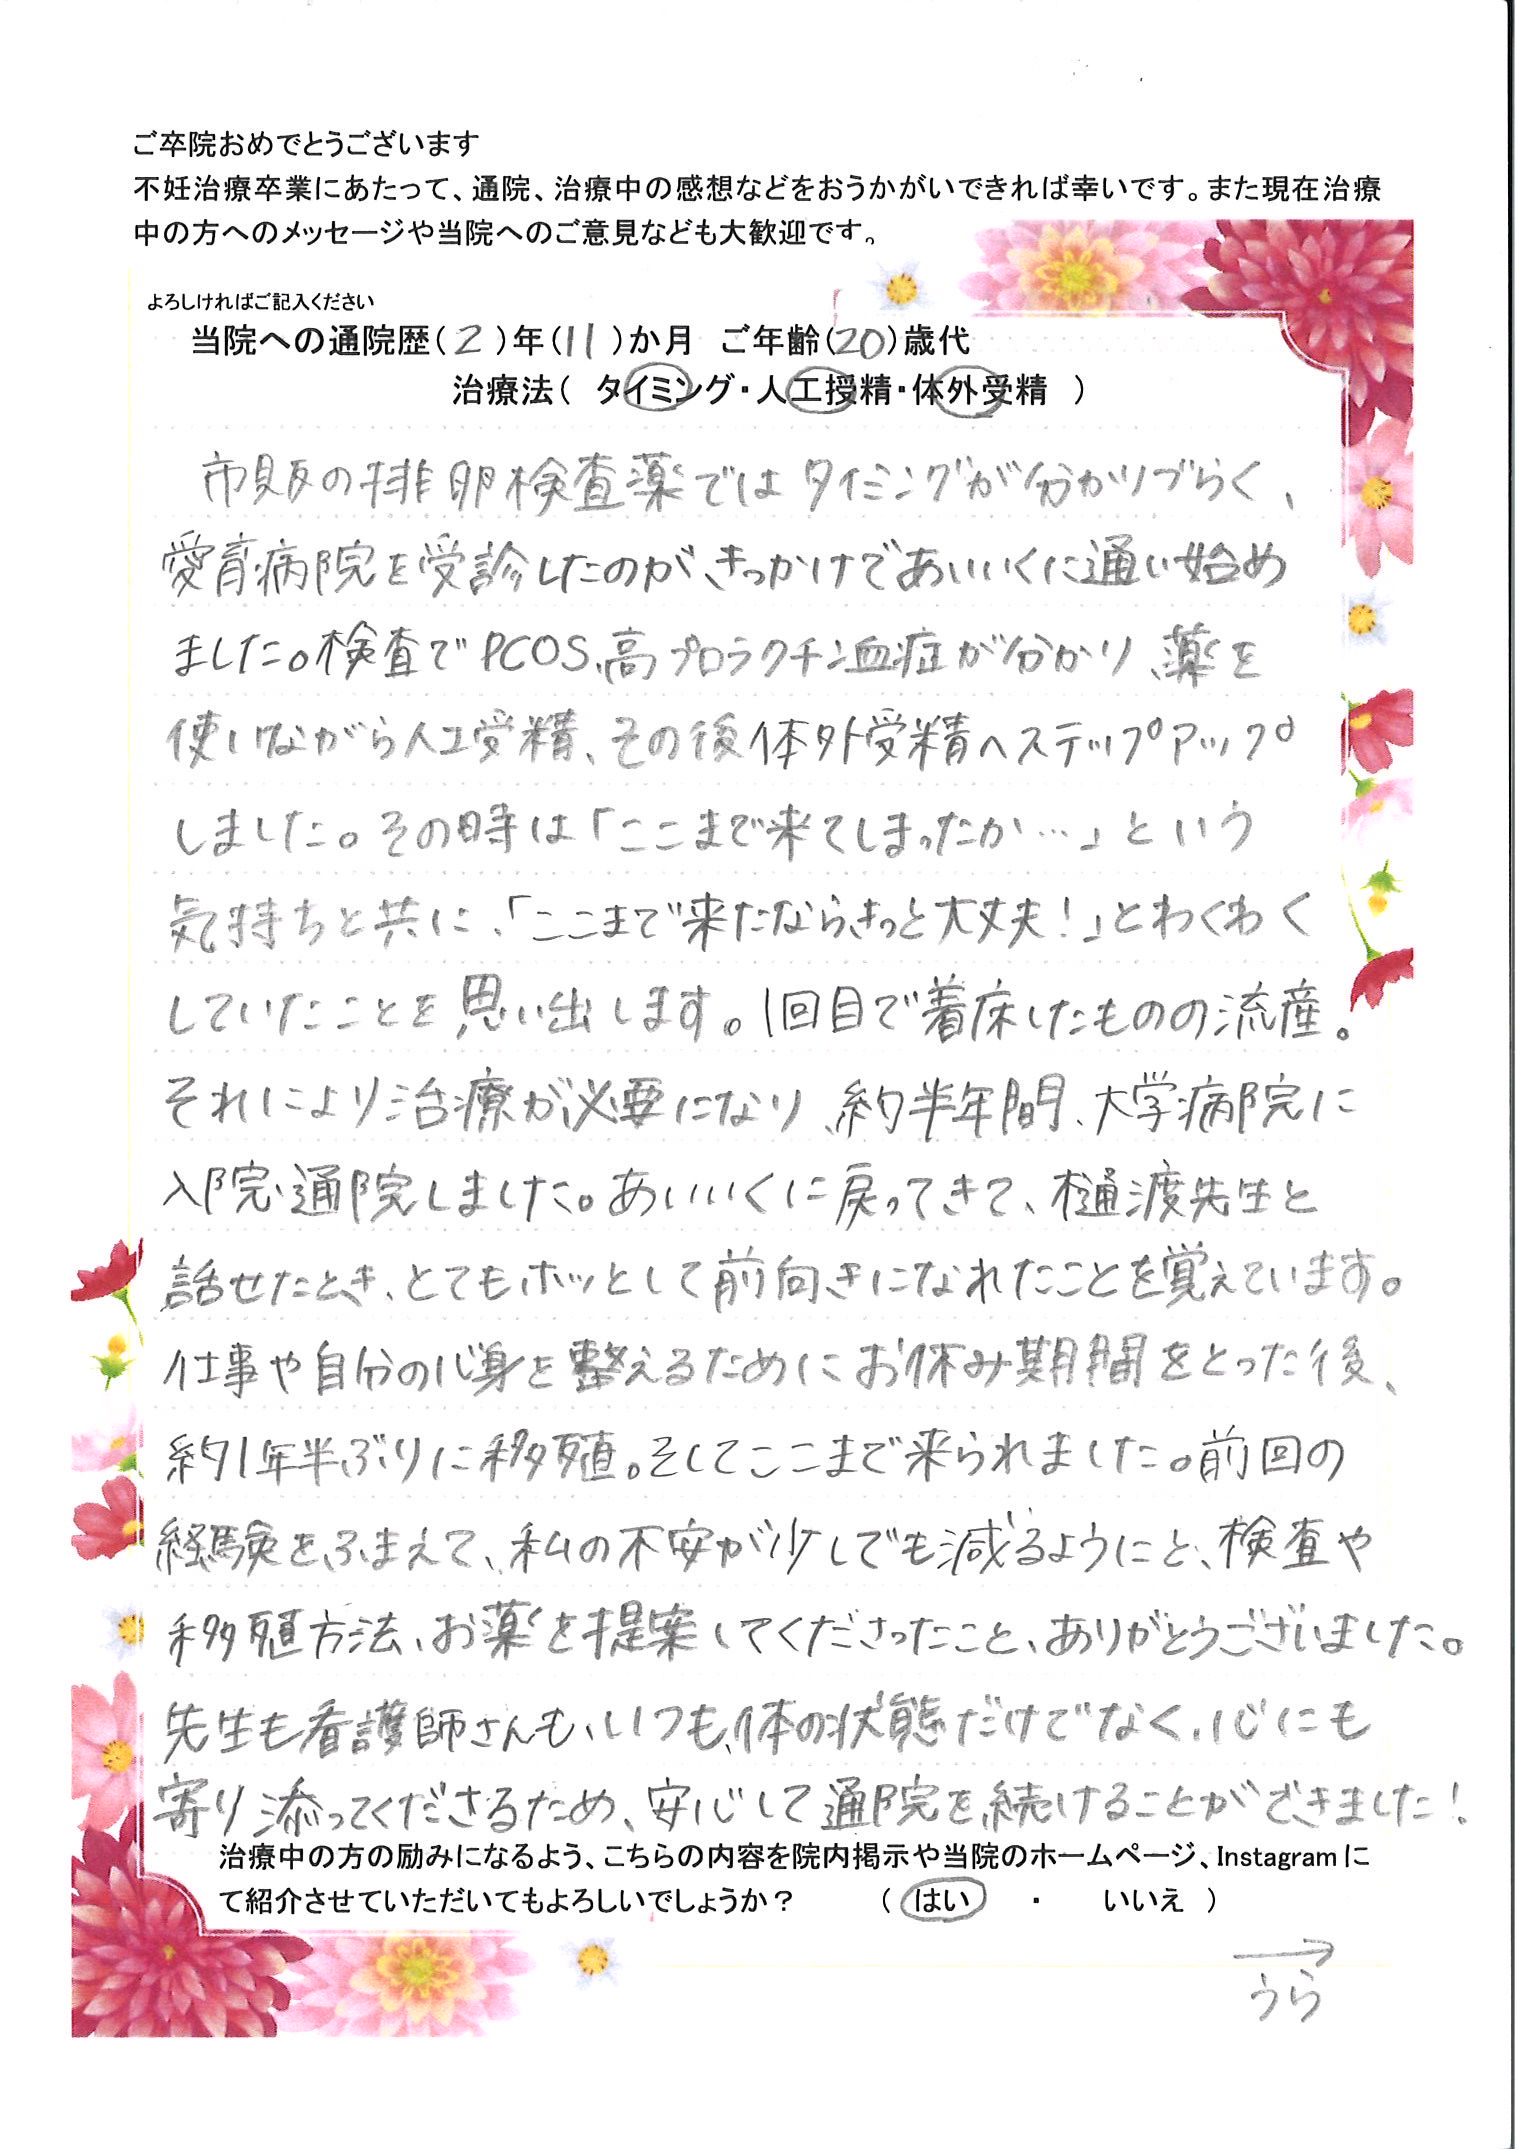 ご卒院おめでとうございます
不妊治療卒業にあたって、通院、治療中の感想などをおうかがいできれば幸いです。また現在治療
中の方へのメッセージや当院へのご意見なども大歓迎です。
よろしければご記入ください
当院への通院歴(2)年(11)か月 ご年齢(20)歳代
治療法( タイミング・人工授精・体外受精 )
市販の排卵検査薬ではタイミングが分かりづらく、
愛育病院を受診したのがきっかけであいいくに通い始め
ました。検査でPCOS、高プロラクチン血症が分かり、薬を
使いながら人工受精、その後体外受精へステップアップ
しました。その時は「ここまで来てしまったか…」という
気持ちと共に、「ここまで来たならきっと大丈夫!」とわくわく
していたことを思い出します。1回目で着床したものの流産。
それにより治療が必要になり、約半年間、大学病院に
入院・通院しました。あいいくに戻ってきて、樋渡先生と
話せたとき、とてもホッとして前向きになれたことを覚えています。
仕事や自分の心身を整えるためにお休み期間をとった後、
約1年半ぶりに移殖。そしてここまで来られました。前回の
経験をふまえて、私の不安が少しでも減るようにと、検査や
移殖方法、お薬を提案してくださったこと、ありがとうございました。
先生も看護師さんも、いつも、体の状態だけでなく、心にも
寄り添ってくださるため、安心して通院を続けることができました!
治療中の方の励みになるよう、こちらの内容を院内掲示や当院のホームページ、Instagramに
て紹介させていただいてもよろしいでしょうか? ( はい ・ いいえ )
→
うら